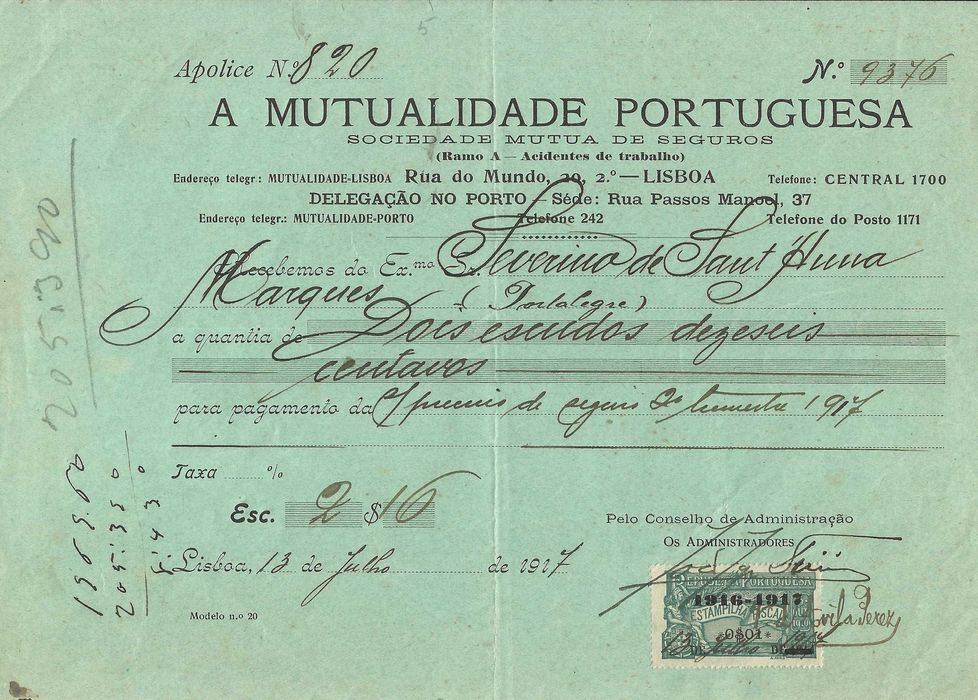 5
Apolice N.º 820
N.º 9376
A MUTUALIDADE PORTUGUESA
SOCIEDADE MUTUA DE SEGUROS
(Ramo A — Acidentes de trabalho)
Endereço telegr.: MUTUALIDADE-LISBOA Rua do Mundo, 20, 2.º — LISBOA Telefone: CENTRAL 1700
DELEGAÇÃO NO PORTO — Séde: Rua Passos Manoel, 37
Endereço telegr.: MUTUALIDADE-PORTO Telefone 242 Telefone do Posto 1171
Recebemos do Ex.mo Sr. Severino de Sant'Anna
Marques (Portalegre)
a quantia de Dois escudos dezeseis
centavos
para pagamento da s/ premio de seguro 3º trimestre 1917
Taxa %
Esc. 2 $ 16
Pelo Conselho de Administração
OS ADMINISTRADORES
Lisboa, 13 de Julho de 1917
REPUBLICA PORTUGUESA
1916-1917
ESTAMPILHA FISCAL
*0$01*
13 DE Julho DE 1917
Avila Perez
Modelo n.º 20
205:390
205:390